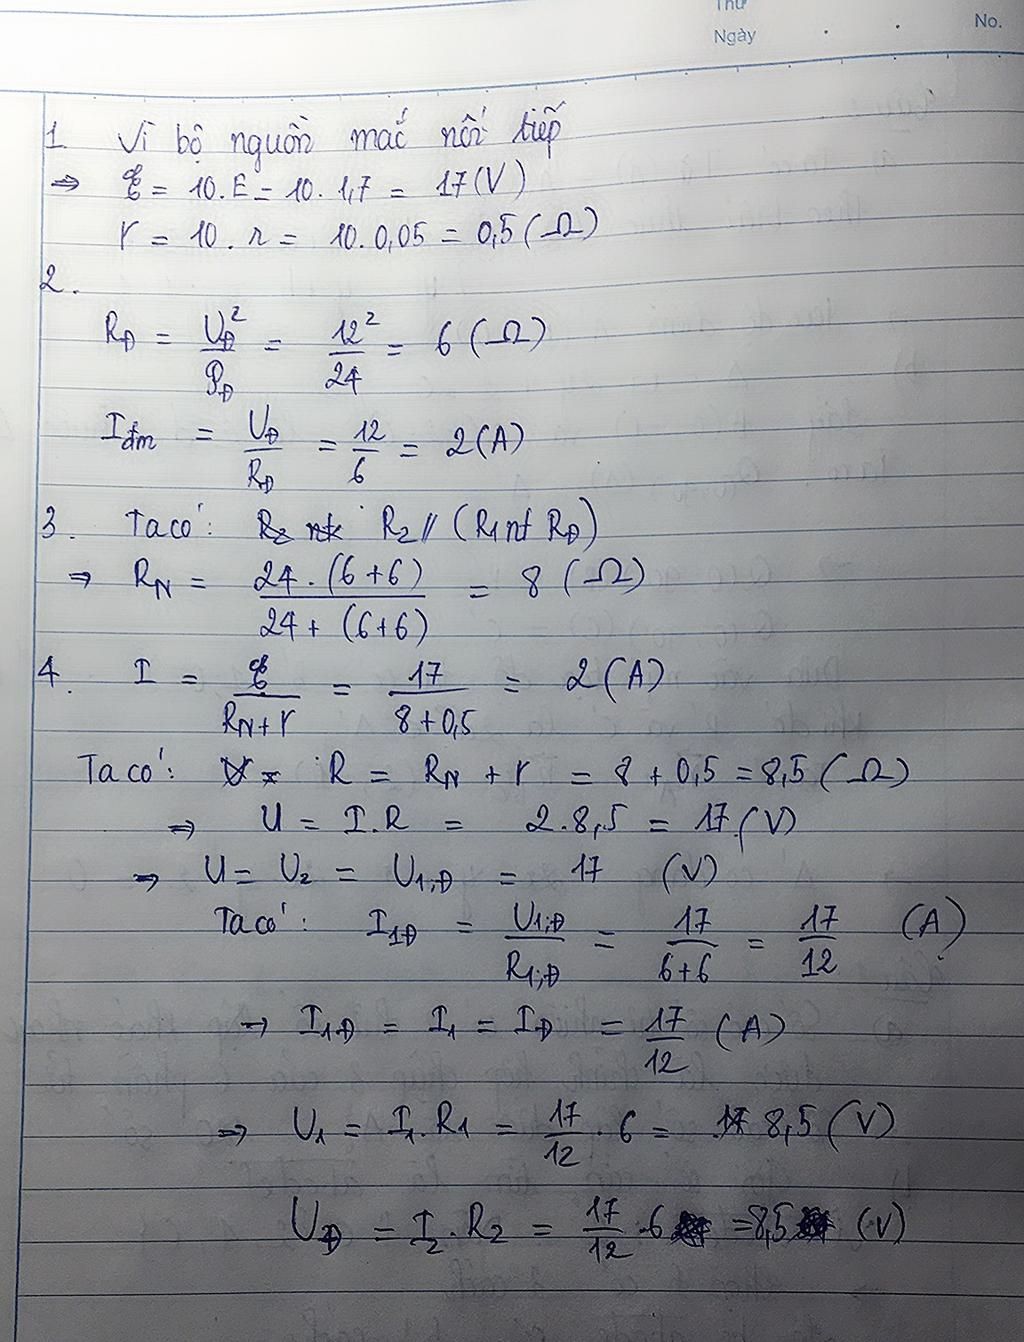 Thứ
Ngày
No.
1 Vì bộ nguồn mắc nối tiếp
⇒ ℰ = 10.E = 10.1,7 = 17(V)
r = 10.r = 10.0,05 = 0,5(Ω)
2.
RĐ = UĐ²/PĐ = 12²/24 = 6(Ω)
Iđm = UĐ/RĐ = 12/6 = 2(A)
3. Ta có: R2 // (R1 nt RĐ)
⇒ RN = 24.(6+6)/24+(6+6) = 8(Ω)
4. I = ℰ/RN+r = 17/8+0,5 = 2(A)
Ta có: R = RN + r = 8+0,5 = 8,5(Ω)
⇒ U = I.R = 2.8,5 = 17(V)
⇒ U = U2 = U1;Đ = 17 (V)
Ta có: I1Đ = U1;Đ/R1;Đ = 17/6+6 = 17/12 (A)
⇒ I1Đ = I1 = IĐ = 17/12 (A)
⇒ U1 = I1.R1 = 17/12 . 6 = 8,5(V)
UĐ = I2.R2 = 17/12 .6 = 8,5 (V)